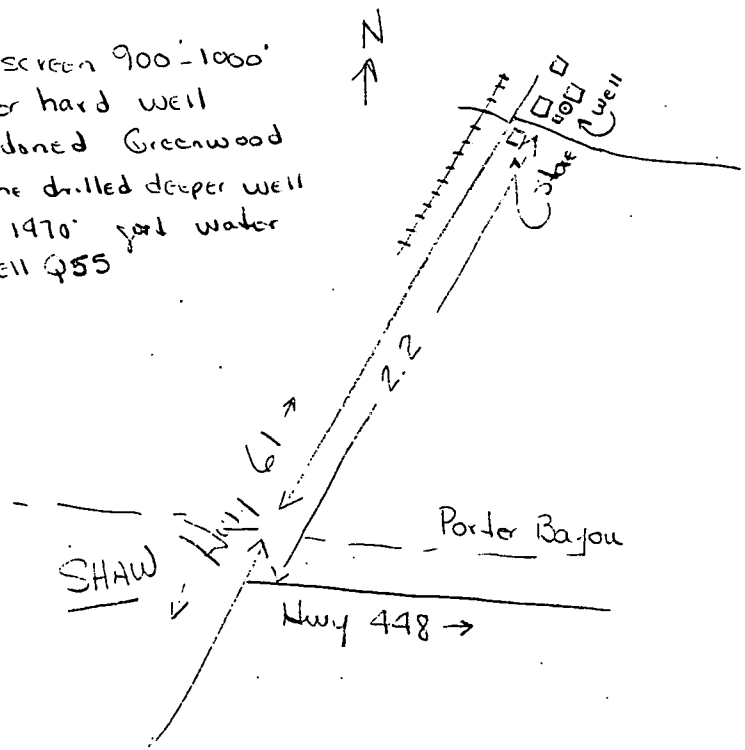 screen 900'-1000'
or hard well
doned Greenwood
ne drilled deeper well
1470' water
ell Q55
N
well
store
2.2
Hwy 61 →
Porter Bayou
SHAW
Hwy 448 →